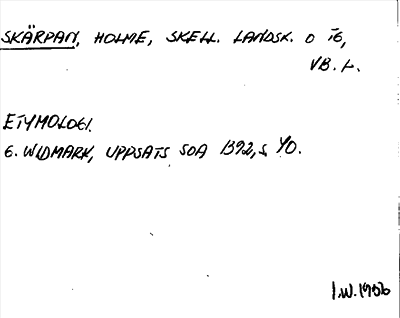 SKÄRPAN, HOLME, SKELL. LANDSK. O IG,
VB. L.
ETYMOLOGI.
G. WIDMARK, UPPSATS SOA 1392, S. 40.
I.W. 1986